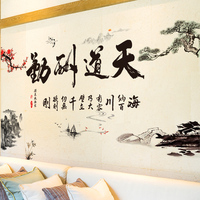 天道酬勤
海纳百川有容乃大壁立千仞無欲则刚